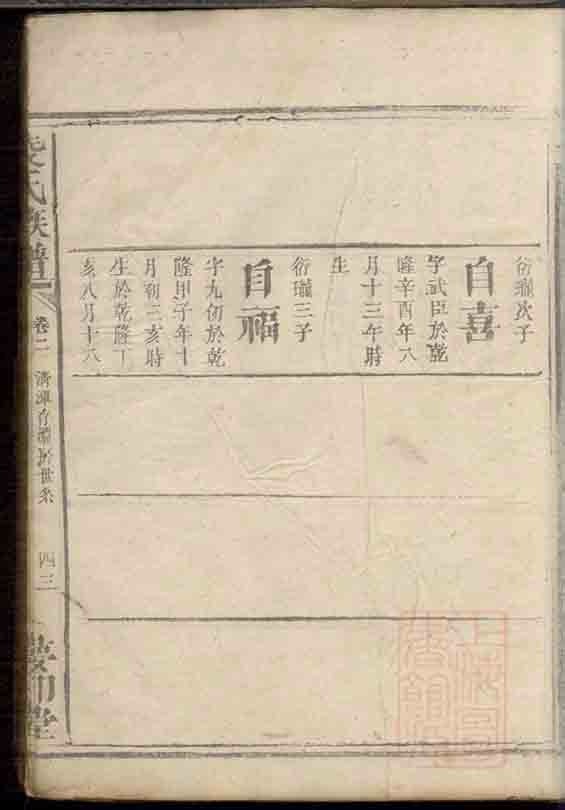 衍瓏次子
自喜
字武臣於乾
隆辛酉年八
月十三午時
生
衍瓏三子
自福
字九仞於乾
隆甲子年十
月初三亥時
生於乾隆丁
亥八月十六
氏族譜
卷二
世系
四三
堂
上海圖書館藏